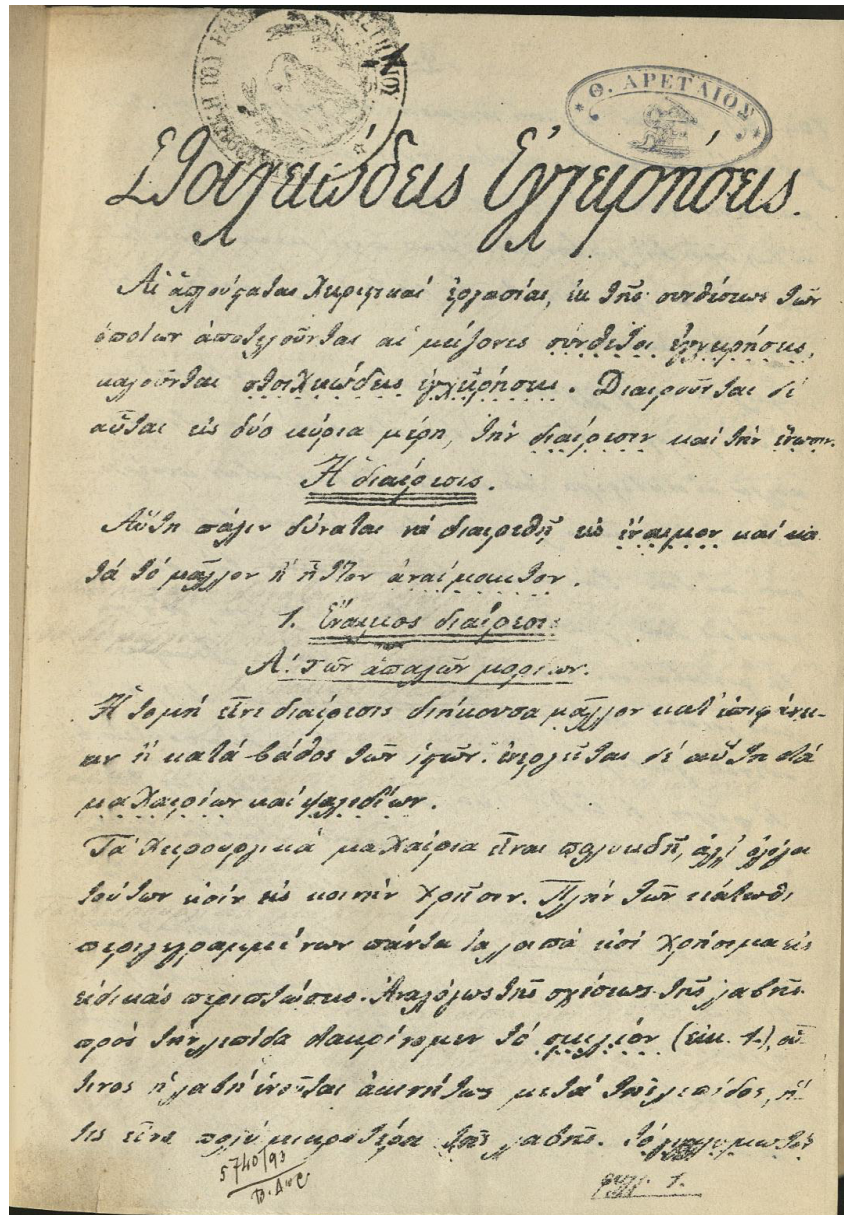 Θ. ΑΡΕΤΑΙΟΣ
Στοιχειώδεις Ἐγχειρήσεις.
Αἱ ἁπλούσταται χειρισκαί ἐργασίαι, ἐκ τῆς συνθέσεως τῶν
ὁποίων ἀποτελοῦνται αἱ μείζονες σύνθετοι ἐγχειρήσεις,
καλοῦνται στοιχειώδεις ἐγχειρήσεις. Διαιροῦνται δέ
αὗται εἰς δύο κύρια μέρη, τήν διαίρεσιν καί τήν ἕνωσιν.
Ἡ διαίρεσις.
Αὕτη πάλιν δύναται νά διαιρεθῇ εἰς ἔναιμον καί κα
τά τό μᾶλλον ἤ ἧττον ἀναίμακτον.
1. Ἔναιμος διαίρεσις
Α'. τῶν ἁπαλῶν μορίων.
Ἡ τομή εἶνε διαίρεσις διήκουσα μᾶλλον κατ' ἐπιφάνει-
αν ἤ κατά βάθος τῶν ἱστῶν. ἐνεργεῖται δέ αὕτη διά
μαχαιρίων καί ψαλιδίων.
Τά χειρουργικά μαχαίρια εἶναι πολυειδῆ, ἀλλ' ὀλίγα
τούτων εἰσίν εἰς κοινήν χρῆσιν. Πλήν τῶν κάτωθι
περιγεγραμμένων πάντα τά λοιπά εἰσί χρήσιμα εἰς
εἰδικάς περιστάσεις. Ἀναλόγως τῆς σχέσεως τῆς λαβῆς
πρός τήν λεπίδα διακρίνομεν τό σμιλίον (εἰκ. 1.), οὗ
τινος ἡ λαβή ἑνοῦται ἀκινήτως μετά τῆς λεπίδος, ἥ
τις εἶνε πολύ μικροτέρα τῆς λαβῆς. τό
5740/93
φυλλ. 1.